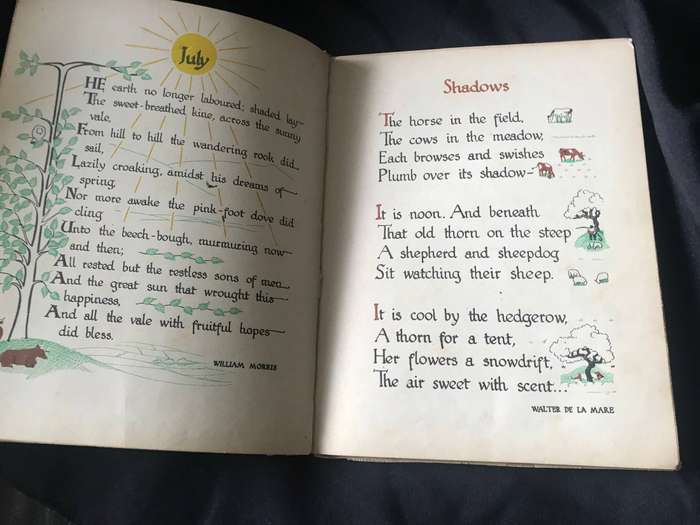 July
HE earth no longer laboured; shaded lay
The sweet-breathed kine, across the sunny
vale,
From hill to hill the wandering rook did
sail,
Lazily croaking, amidst his dreams of
spring,
Nor more awake the pink-foot dove did
cling
Unto the beech-bough, murmuring now
and then;
All rested but the restless sons of men
And the great sun that wrought this
happiness,
And all the vale with fruitful hopes
did bless.
WILLIAM MORRIS
Shadows
The horse in the field,
The cows in the meadow,
Each browses and swishes
Plumb over its shadow-
It is noon. And beneath
That old thorn on the steep
A shepherd and sheepdog
Sit watching their sheep.
It is cool by the hedgerow,
A thorn for a tent,
Her flowers a snowdrift,
The air sweet with scent...
WALTER DE LA MARE